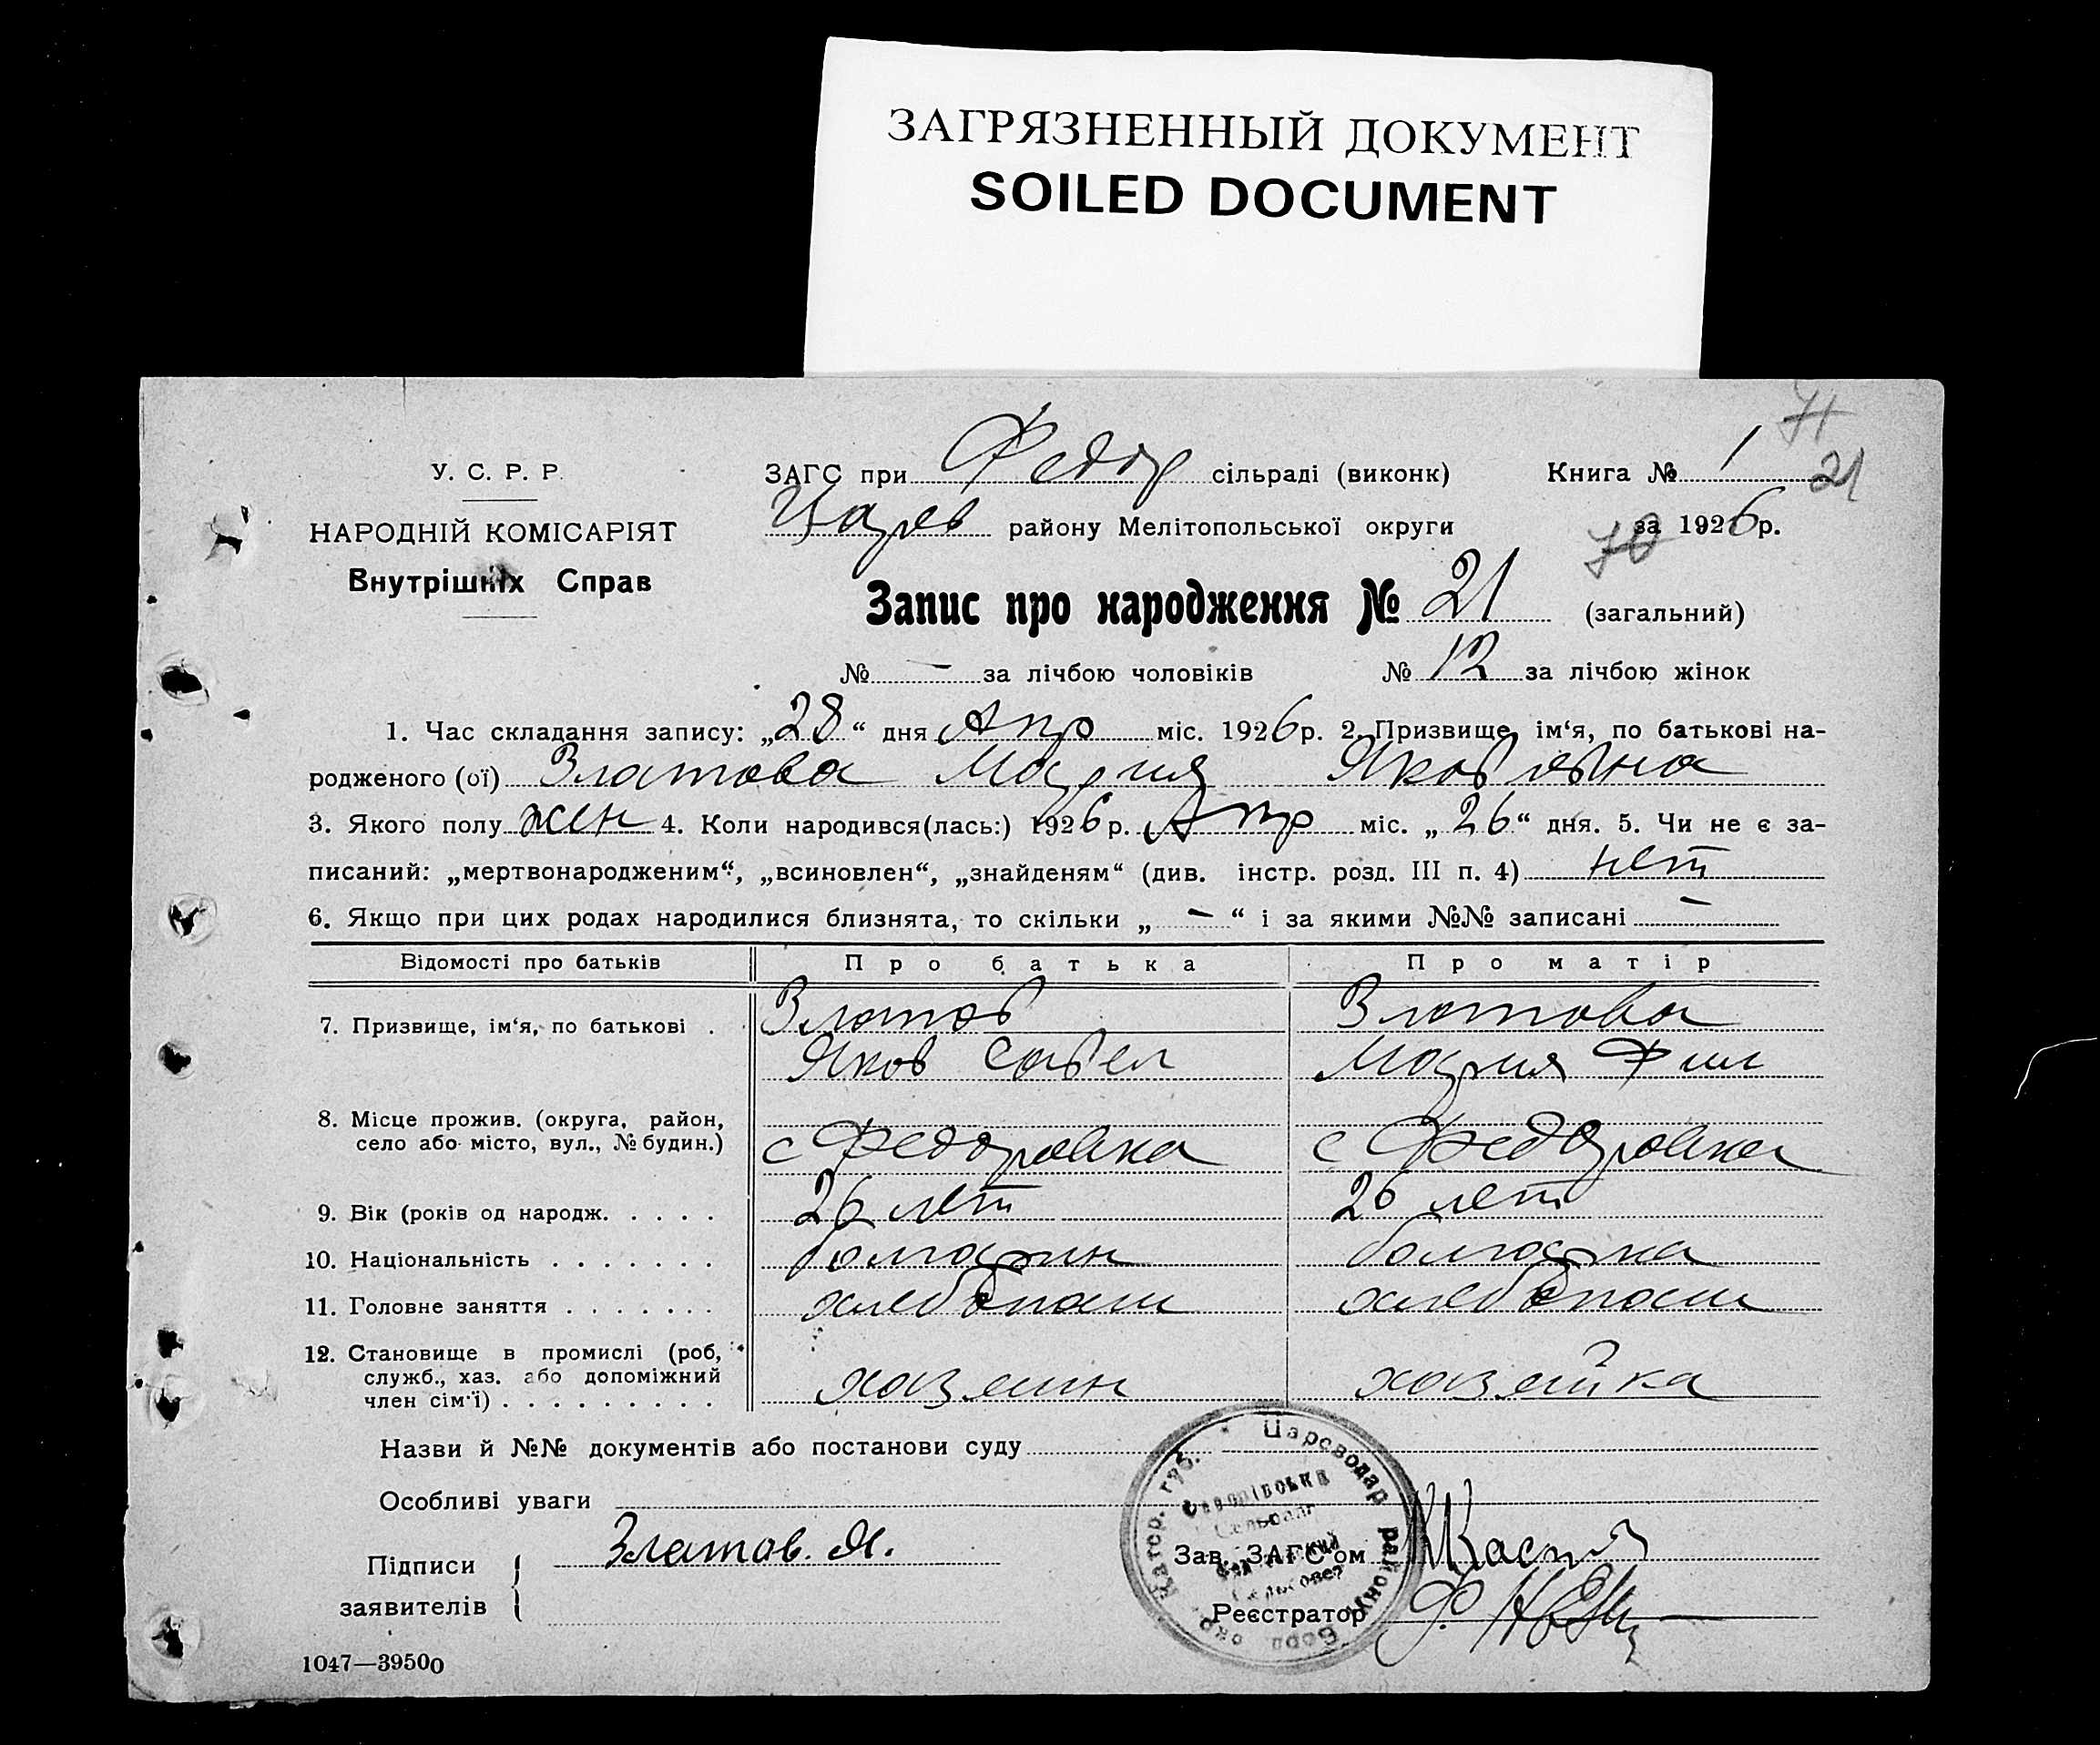 ЗАГРЯЗНЕННЫЙ ДОКУМЕНТ
SOILED DOCUMENT
71
У. С. Р. Р.
ЗАГС при Федор сільраді (виконк) Книга № 1
21
НАРОДНІЙ КОМІСАРІЯТ
Царев району Мелітопольської округи за 1926 р.
70
Внутрішніх Справ
Запис про народження № 21 (загальний)
№ — за лічбою чоловіків № 12 за лічбою жінок
1. Час складання запису: „28“ дня Апр міс. 1926 р. 2. Призвище, ім‘я, по батькові на-
родженого (ої) Златова Мария Яковлевна
3. Якого полу жен 4. Коли народився(лась:) 1926 р. Апр міс. „26“ дня. 5. Чи не є за-
писаний: „мертвонародженим“, „всиновлен“, „знайденям“ (див. інстр. розд. III п. 4) нет
6. Якщо при цих родах народилися близнята, то скільки „ — “ і за якими №№ записані —
Відомості про батьків Про батька Про матір
7. Призвище, ім‘я, по батькові . Златов Златова
Яков Савел Мария Фил
8. Місце прожив. (округа, район,
село або місто, вул., № будин.) с Федоровка с Федоровка
9. Вік (років од народж. . . . . 26 лет 26 лет
10. Національність . . . . . . . болгарин болгарка
11. Головне заняття . . . . . . . хлебопаш хлебопаш
12. Становище в промислі (роб,
служб., хаз. або допоміжний
член сім‘ї) . . . . . . . . . хазяин хазяйка
Назви й №№ документів або постанови суду
Особливі уваги
Царєводар району Катер. губ.
Підписи Златов. Я. Зав. ЗАГС‘ом
заявителів Реєстратор
1047—39500